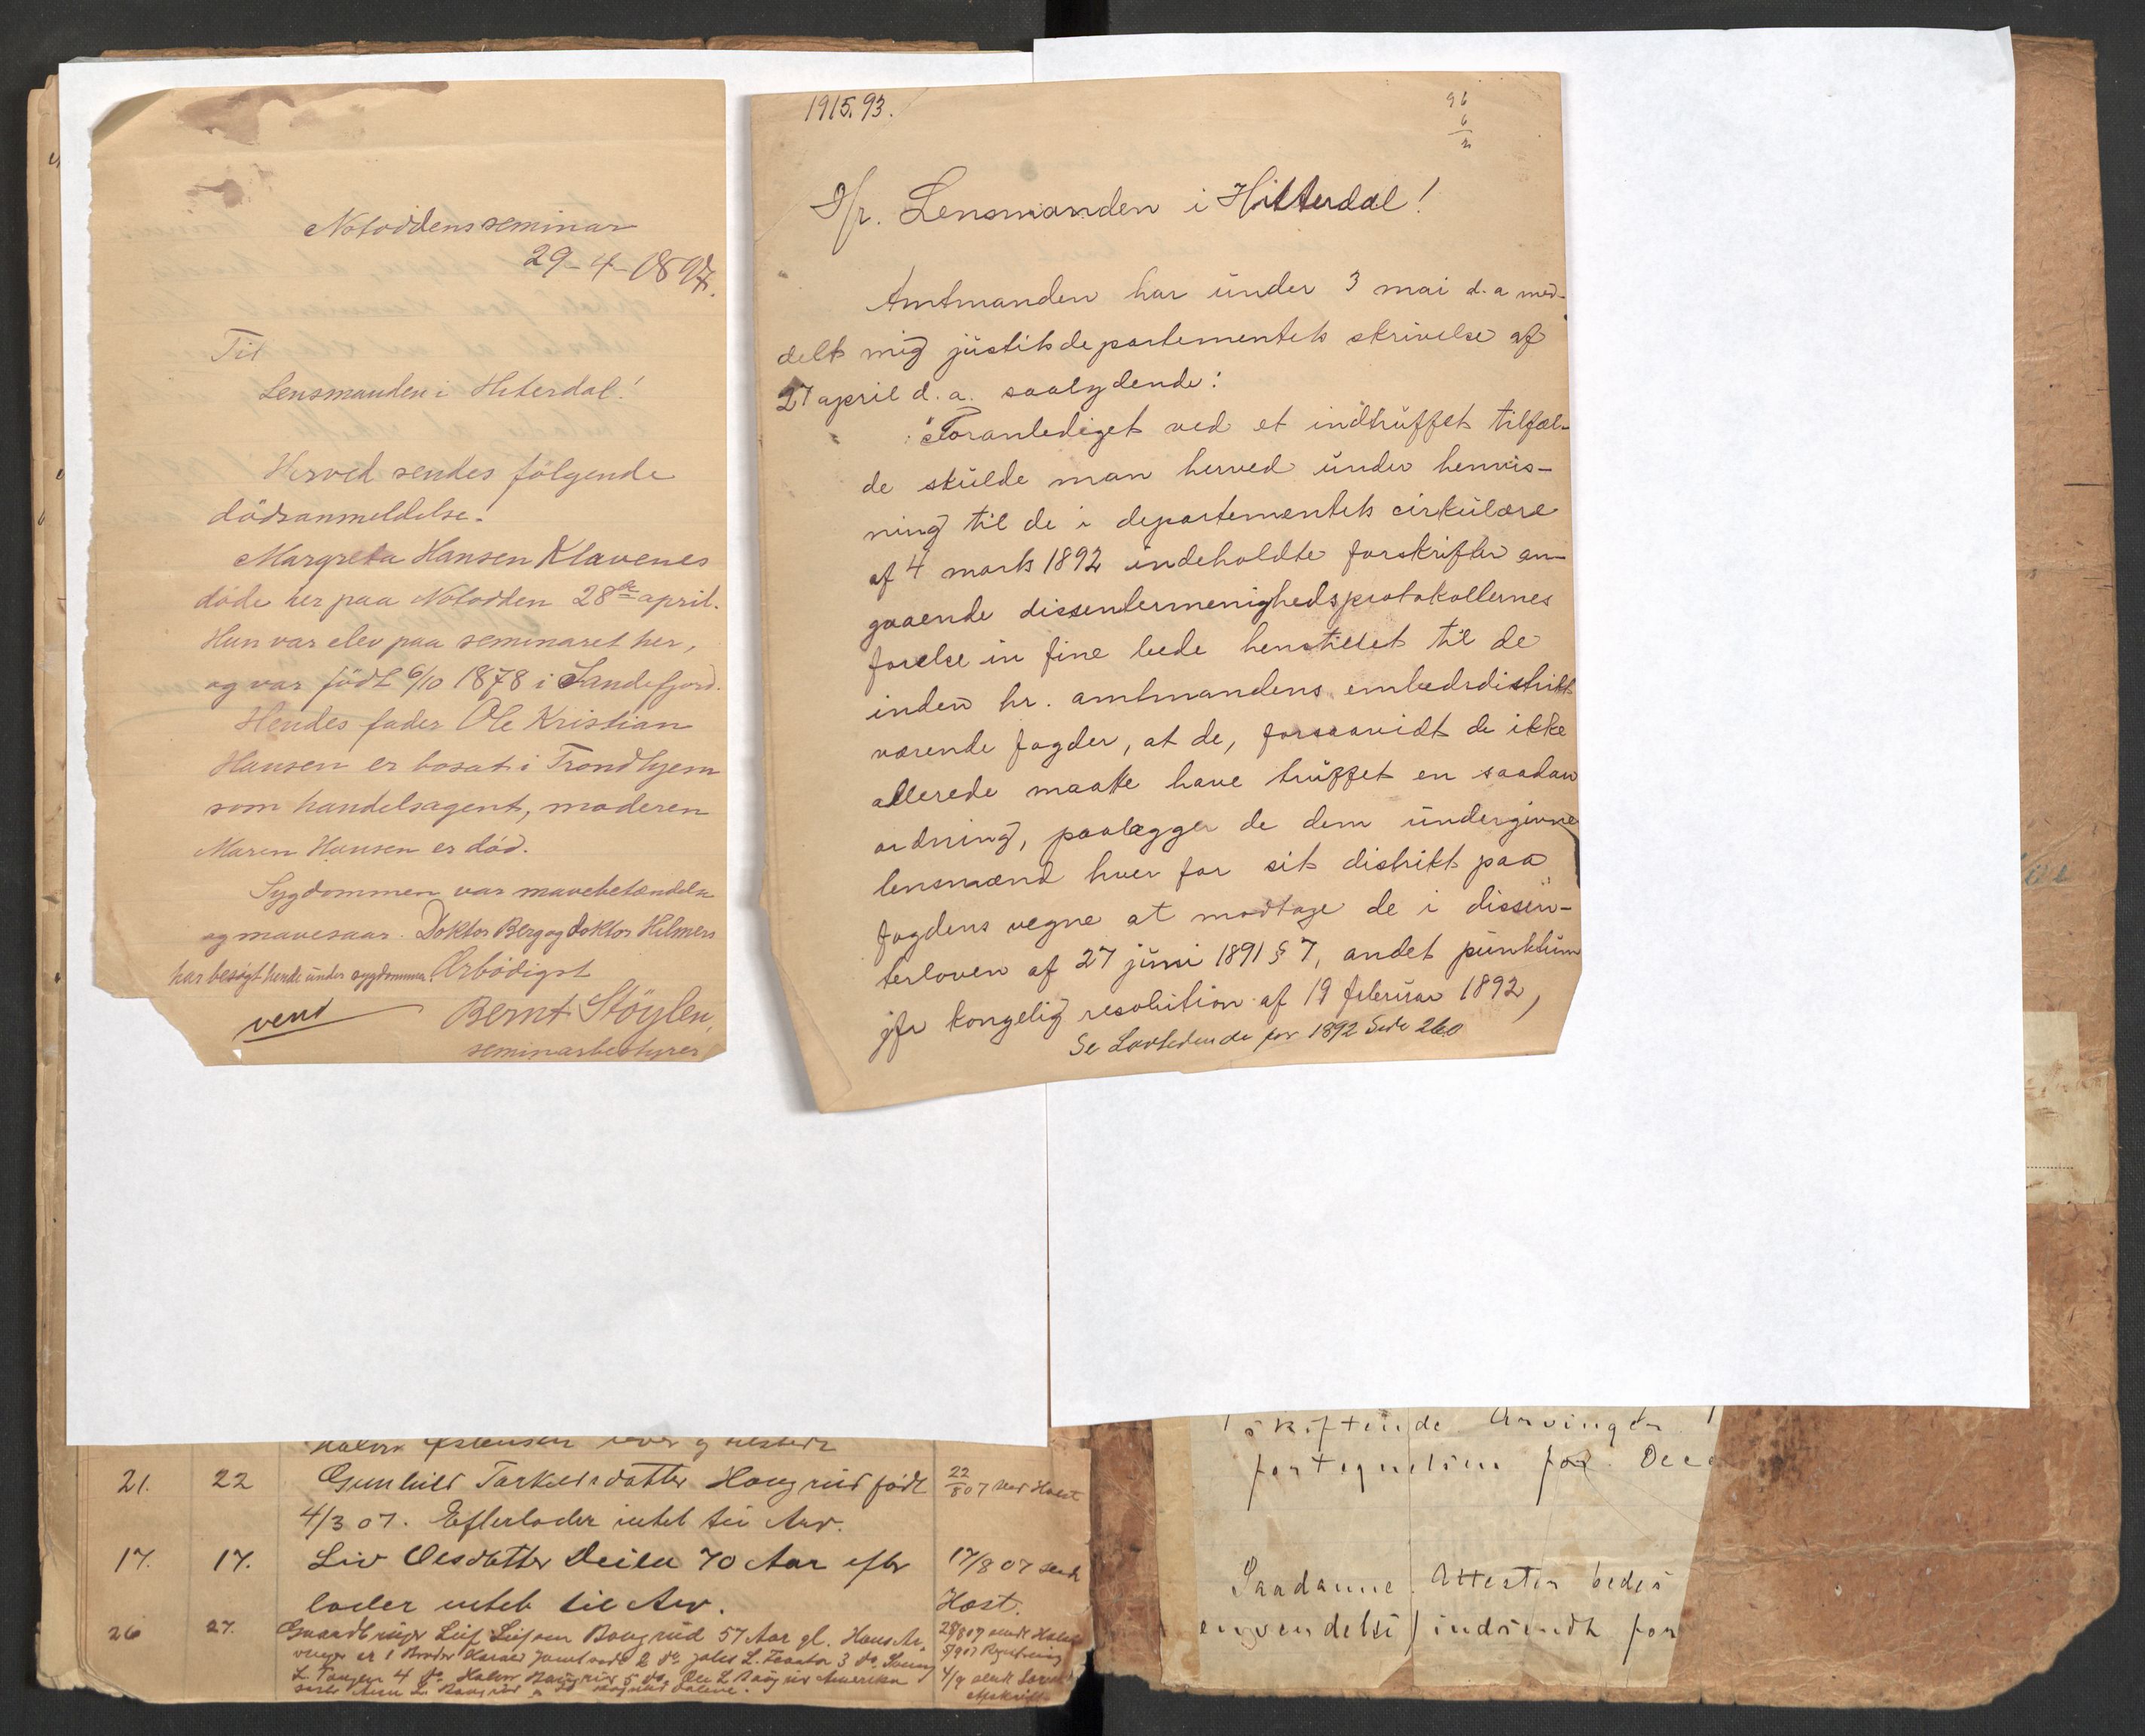 Notoddens seminar
29-4-1897.
Til
Lensmanden i Hiterdal!
Herved sendes følgende
dödsanmeldelse.
Margreta Hansen Klavenes
döde her paa Notodden 28de april.
Hun var elev paa seminaret her,
og var födt 6/10 1878 i Sandefjord.
Hendes fader Ole Kristian
Hansen er bosat i Trondhjem
som handelsagent, moderen
Maren Hansen er död.
Sygdommen var mavebetændelse
og mavesaar. Doktor Berg og doktor Helmers
har besögt hende under sygdommen. Ærbödigst
vend
Bernt Stöylen,
seminarbestyrer
1915.93.
96
6
2
Hr. Lensmanden i Hitterdal!
Amtmanden har under 3 mai d. a med-
delt mig justitsdepartementets skrivelse af
27 april d. a. saalydende:
"Foranlediget ved et indtruffet tilfæl-
de skulde man herved under henvis-
ning til de i departementets cirkulære
af 4 marts 1892 indeholdte forskrifter an-
gaaende dissentermenighedsprotokollernes
førelse in fine bede henstillet til de
inden hr. amtmandens embedsdistrikt
værende fogder, at de, forsaavidt de ikke
allerede maatte have truffet en saadan
ordning, paalægger de dem undergivne
lensmænd hver for sit distrikt paa
fogdens vegne at modtage de i dissen-
terloven af 27 juni 1891 § 7, andet punktum
jfr kongelig resolution af 19 februar 1892,
Se Lovtidende for 1892 Side 260
21. 22 Gunhild Torkeldsdatter Haugrud født 22/8 07 send Høst
4/3 07. Efterlader intet til Arv.
17. 17. Liv Olsdatter 70 Aar efter 17/8 07 send
lader intet til Arv. Høst.
26 27. Gaardbruger Leif Leifsen Baugrud 57 Aar gl. Hans Ar-
vinger er 1 Broder
L. Tangen 4 do Halvor Baugrud 5 do Ole L Baugrud Amerika
skiftende Arvinger
for
Saadanne Attester bedes
envendelse indsendt for